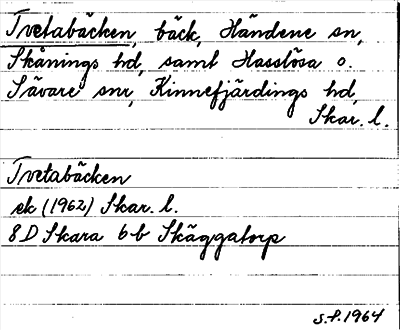 Tvetabäcken, bäck, Händene sn,
Skånings hd, samt Hasslösa o.
Sävare snr, Kinnefjärdings hd,
Skar. l.
Tvetabäcken
ek (1962) Skar. l.
8D Skara 6b Skäggatorp
S.F. 1964